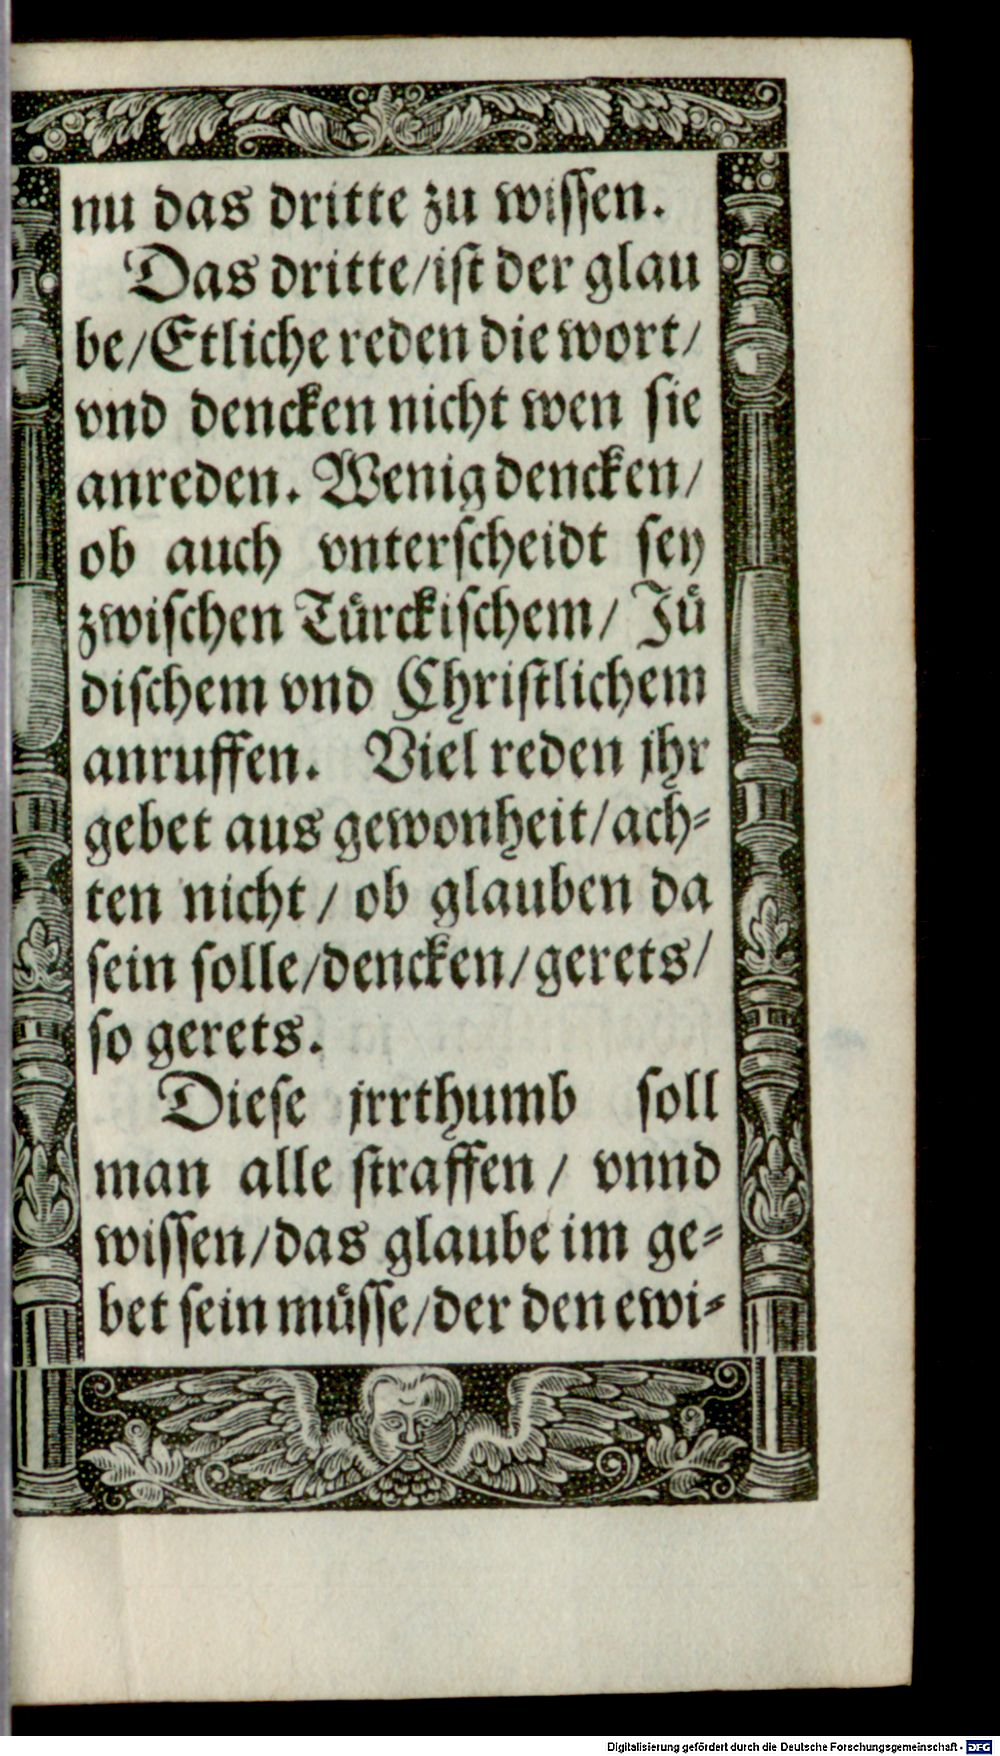 nu das dritte zu wiſſen.
Das dritte/iſt der glau
be/Etliche reden die wort/
vnd dencken nicht wen ſie
anreden. Wenig dencken/
ob auch vnterſcheidt ſey
zwiſchen Tuͤrckiſchem/ Juͤ
diſchem vnd Chriſtlichem
anruffen. Viel reden jhr
gebet aus gewonheit/ach⸗
ten nicht / ob glauben da
ſein ſolle/dencken/gerets/
ſo gerets.
Dieſe jrrthumb ſoll
man alle ſtraffen / vnnd
wiſſen/das glaube im ge⸗
bet ſein muͤſſe/der den ewi⸗
Digitalisierung gefördert durch die Deutsche Forschungsgemeinschaft - DFG